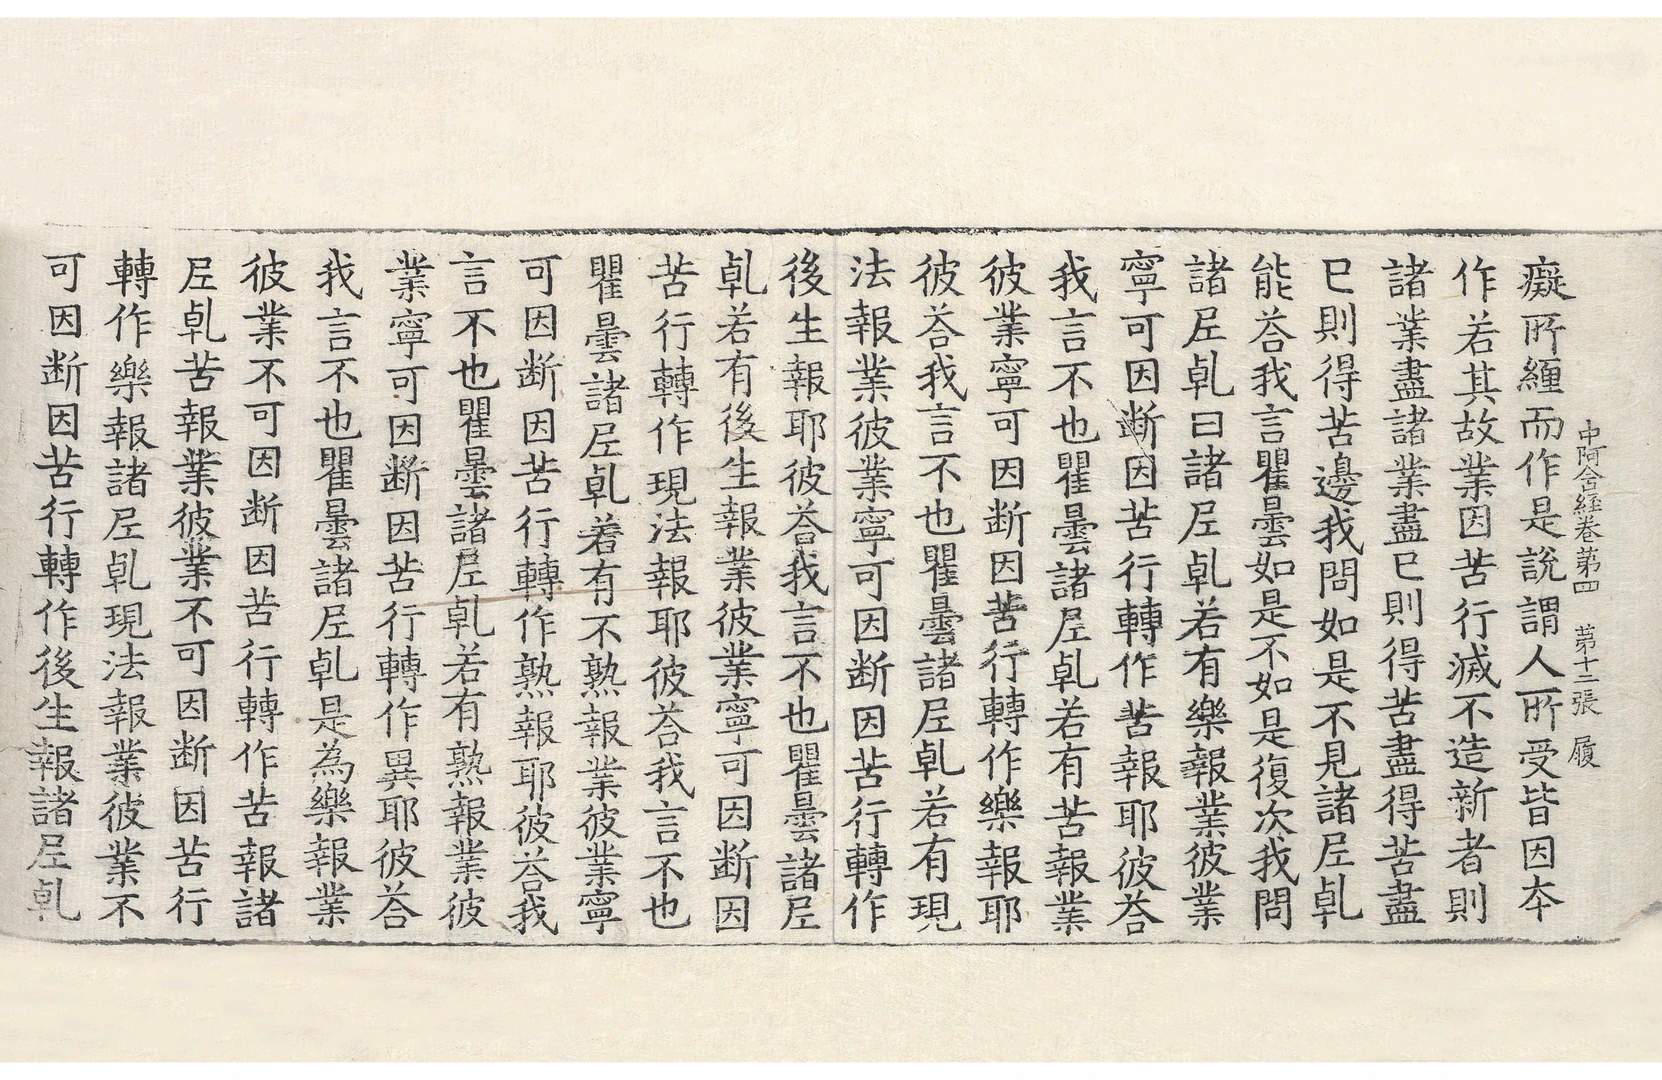 中阿含經卷第四　第十二張　履
癡所纏而作是說謂人所受皆因本
作若其故業因苦行滅不造新者則
諸業盡諸業盡已則得苦盡得苦盡
已則得苦邊我問如是不見諸尼乹
能荅我言瞿曇如是不如是復次我問
諸尼乹曰諸尼乹若有樂報業彼業
寧可因断因苦行轉作苦報耶彼荅
我言不也瞿曇諸尼乹若有苦報業
彼業寧可因断因苦行轉作樂報耶
彼荅我言不也瞿曇諸尼乹若有現
法報業彼業寧可因断因苦行轉作
後生報耶彼荅我言不也瞿曇諸尼
乹若有後生報業彼業寧可因断因
苦行轉作現法報耶彼荅我言不也
瞿曇諸尼乹若有不熟報業彼業寧
可因断因苦行轉作熟報耶彼荅我
言不也瞿曇諸尼乹若有熟報業彼
業寧可因断因苦行轉作異耶彼荅
我言不也瞿曇諸尼乹是為樂報業
彼業不可因断因苦行轉作苦報諸
尼乹苦報業彼業不可因断因苦行
轉作樂報諸尼乹現法報業彼業不
可因断因苦行轉作後生報諸尼乹